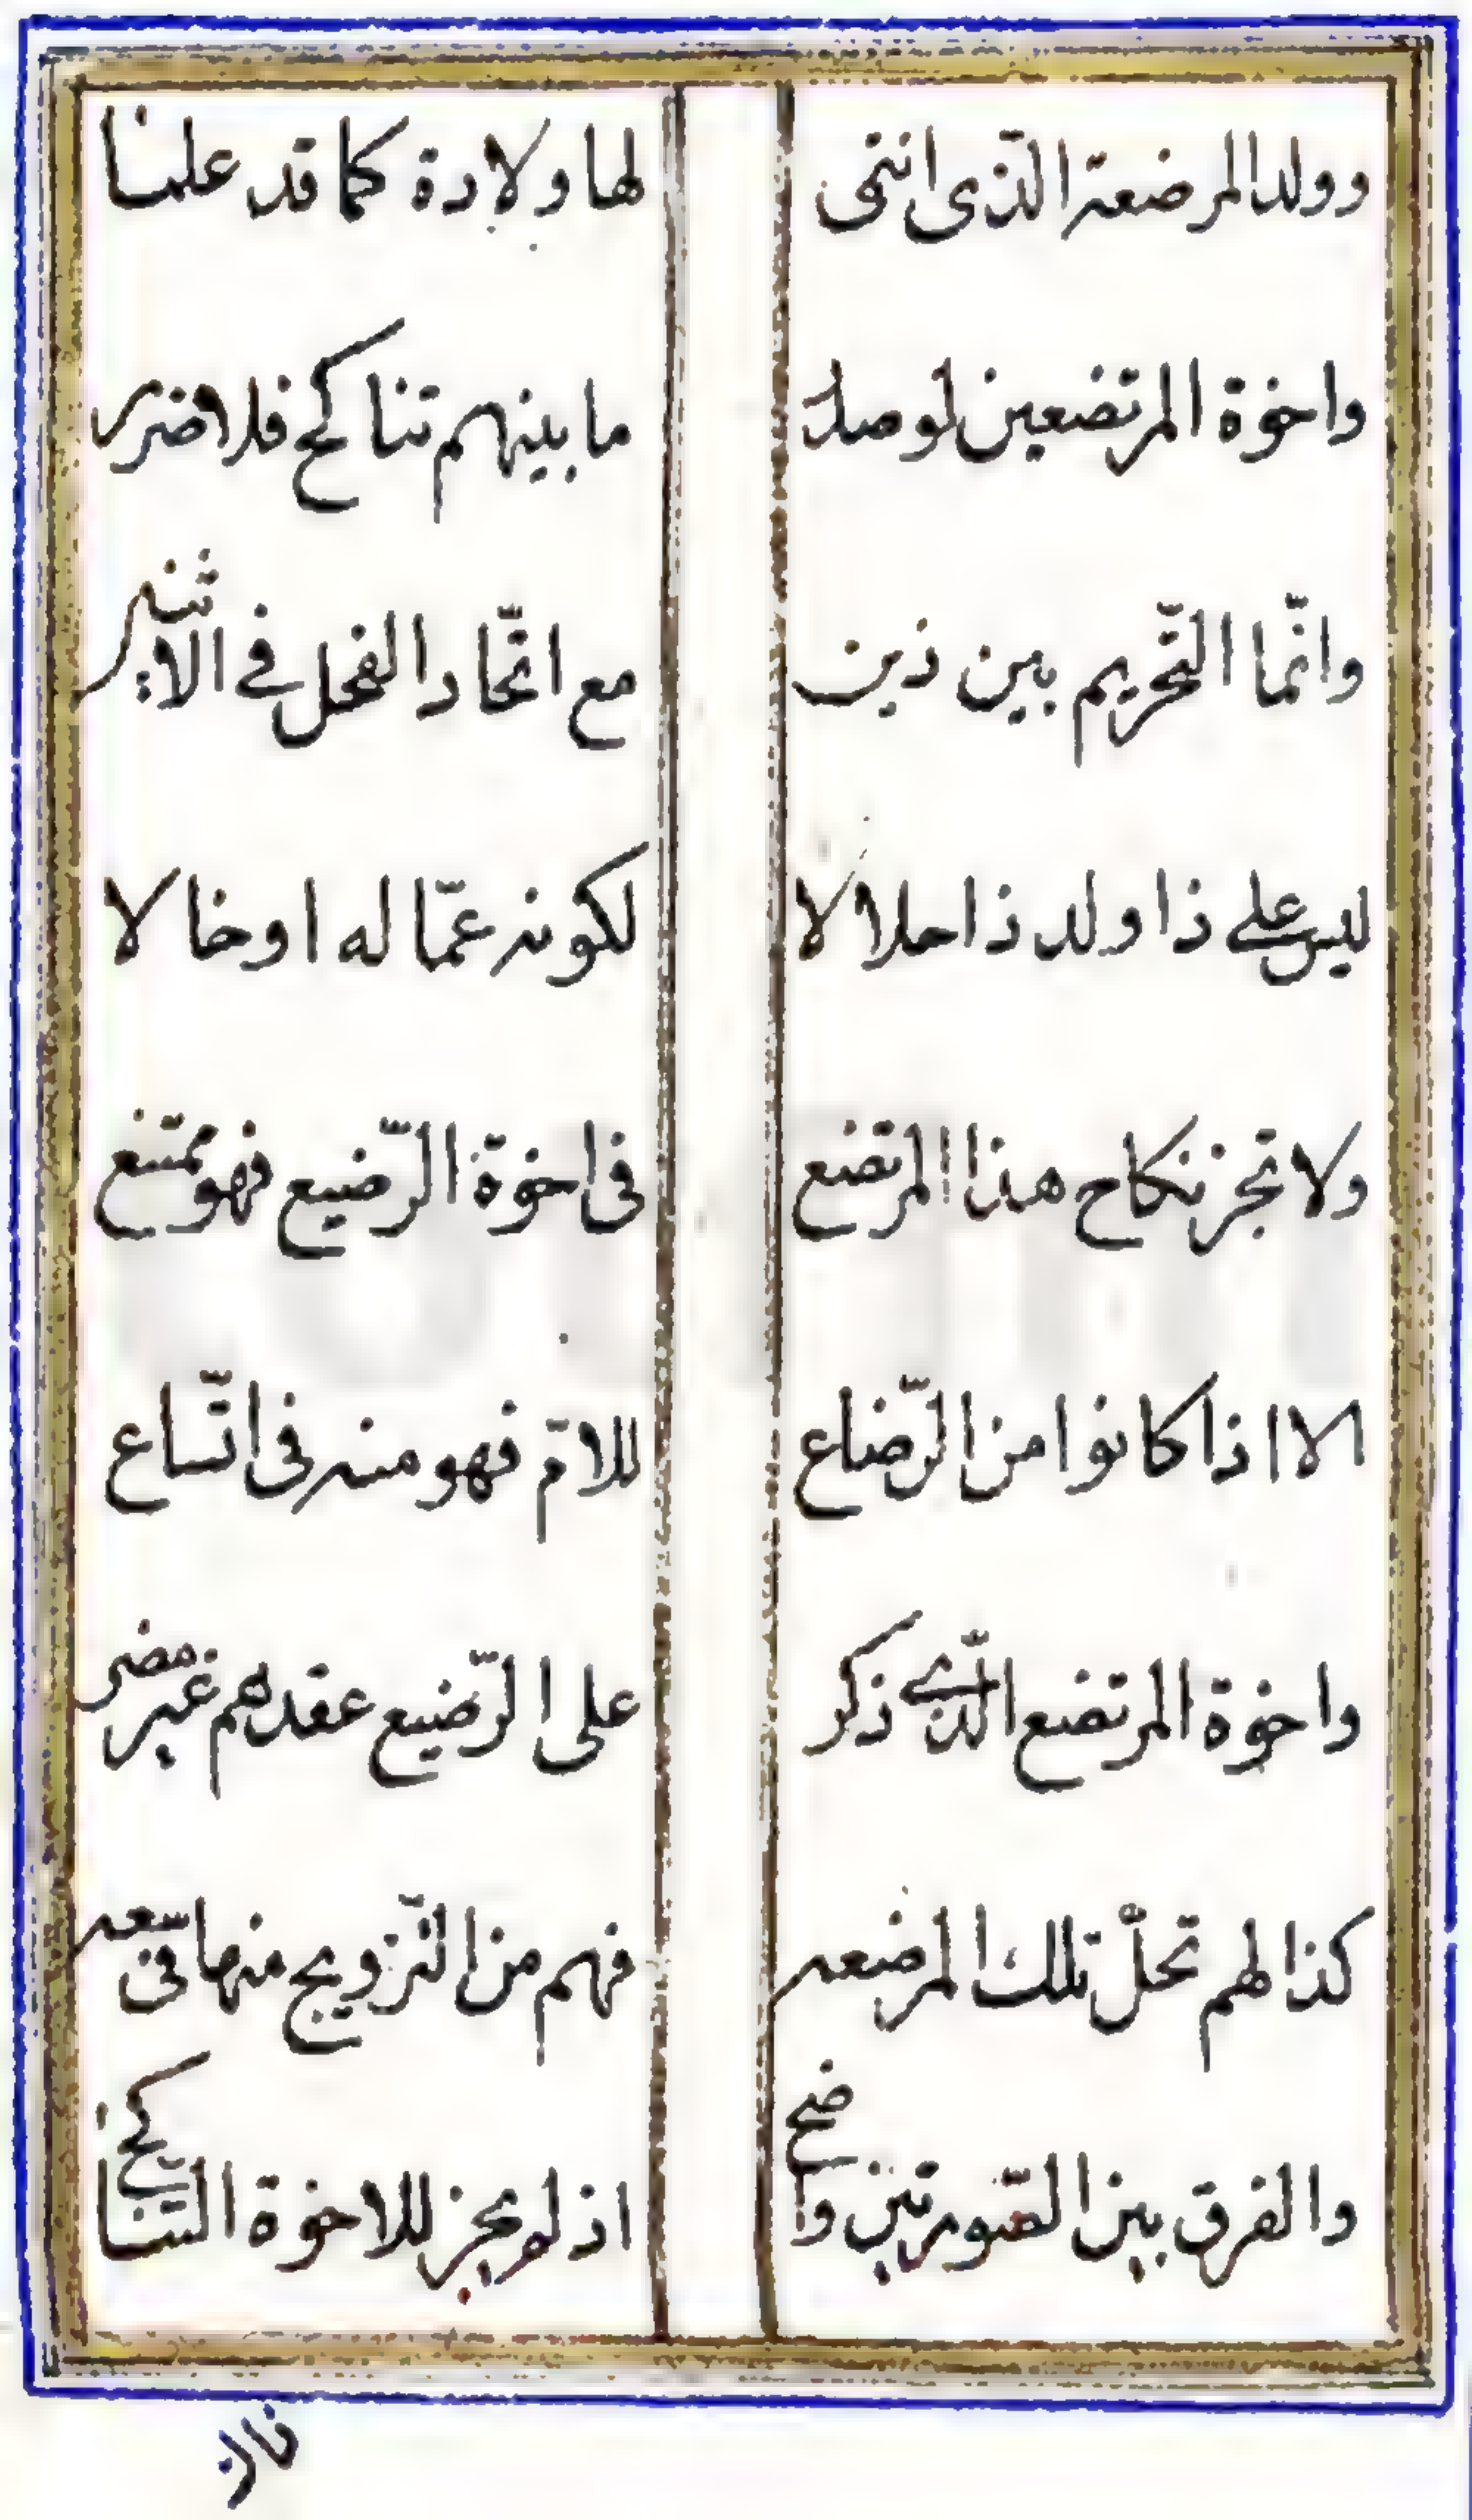 وولد المرضعة الذّى انتمى لها ولادة كما قد علما
واخوة المرتضعين لو صدر ما بينهم تناكح فلا ضرر
وانّما التّحريم بين ذين مع اتّحاد الفحل فى الاثنين
ليس على ذا ولد ذا حلالا لكونه عمّا له او خالا
ولا تجز نكاح هذا المرتضع فى اخوة الرّضيع فهو ممتنع
الا اذا كانوا من الرّضاع للامّ فهو منه فى اتّساع
واخوة المرتضع الّذى ذكر على الرّضيع عقدهم غير مضر
كذا لهم تحلّ تلك المرضعه فهم من التّزويج منها فى سعه
والفرق بين الصّورتين واضح اذ لم يجز للاخوة التّناكح